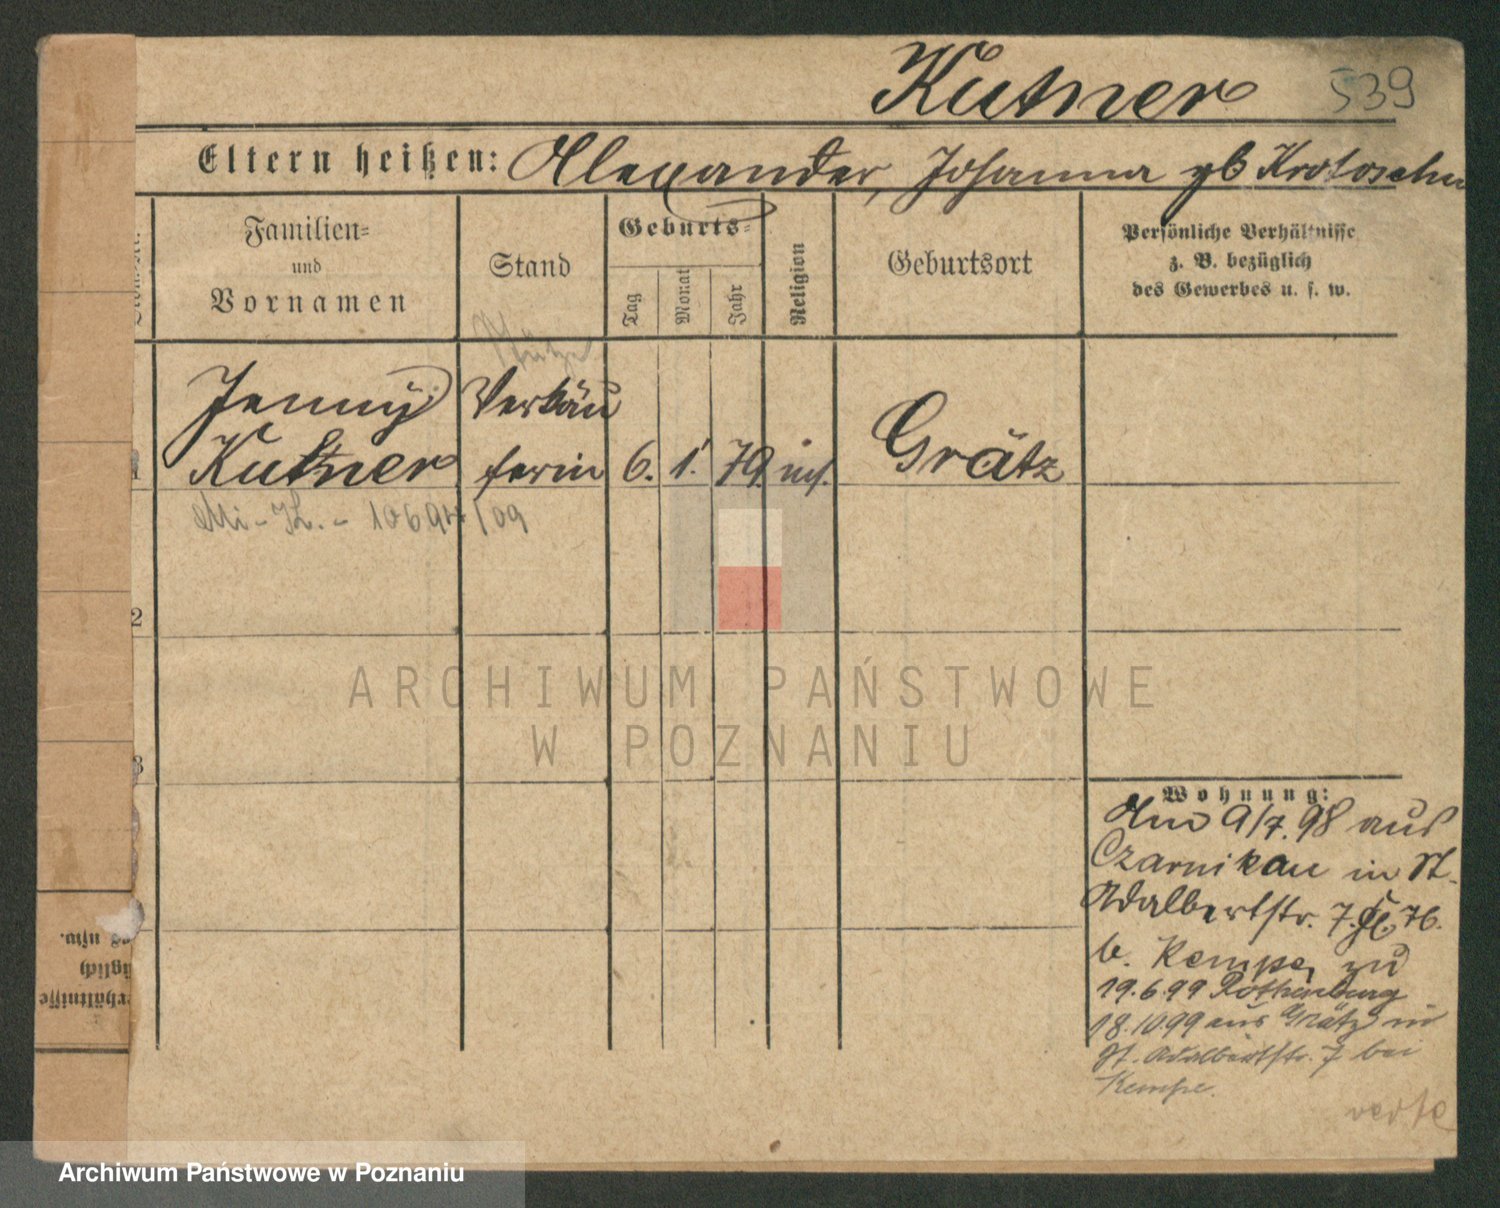 Kutner 539
Eltern heißen: Alexander, Johanna gb Krotoschin
Familien-
und
Vornamen
Stand
Geburts-
Tag
Monat
Jahr
Religion
Geburtsort
Persönliche Verhältnisse
z. B. bezüglich
des Gewerbes u. s. w.
Stütze
Jenny Verkäu
1 Kutner ferin 6. 1. 79. Grätz
Mi - - 10694/09
2
3
ARCHIWUM PAŃSTWOWE
W POZNANIU
Wohnung:
9/7.98 aus
Czarnikau in St.
Adalbertstr. 7. 76.
b. Kempe, zu
19.6.99 Rothenburg
18.10.99 aus Grätz in
St. Adalbertstr. 7 bei
Kempe.
verte
usw.
züglich
erhältnisse
Archiwum Państwowe w Poznaniu